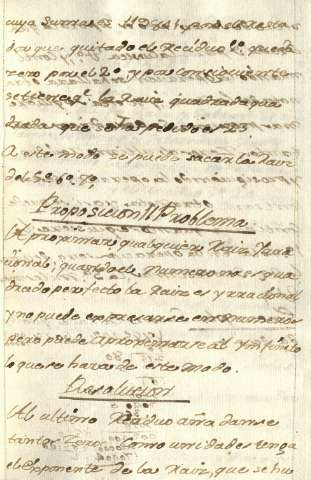 cuya suma es 11284; pues restado
dro que quitado el Reciduo 1º queda
zero por el 2º y por consiguiente
se tiene q.e la Raiz quadrada qua
drada que se ha pedido es 23
A este modo se puede sacar la Raiz
del 5º 6º 7º
Proposicion II Problema
Aproximar qualquiera Raiz Yrra
cional; quando el numero no es qua
drado perfecto la Raiz es yrracional
y no puede expresarse en numeros
pero puede aproximarse al ynfinito
lo que se hara de este modo.
Resolucion
Al ultimo Reciduo añadanse
tantos zeros como unidades tenga
el Exponente de la Raiz, que se hu